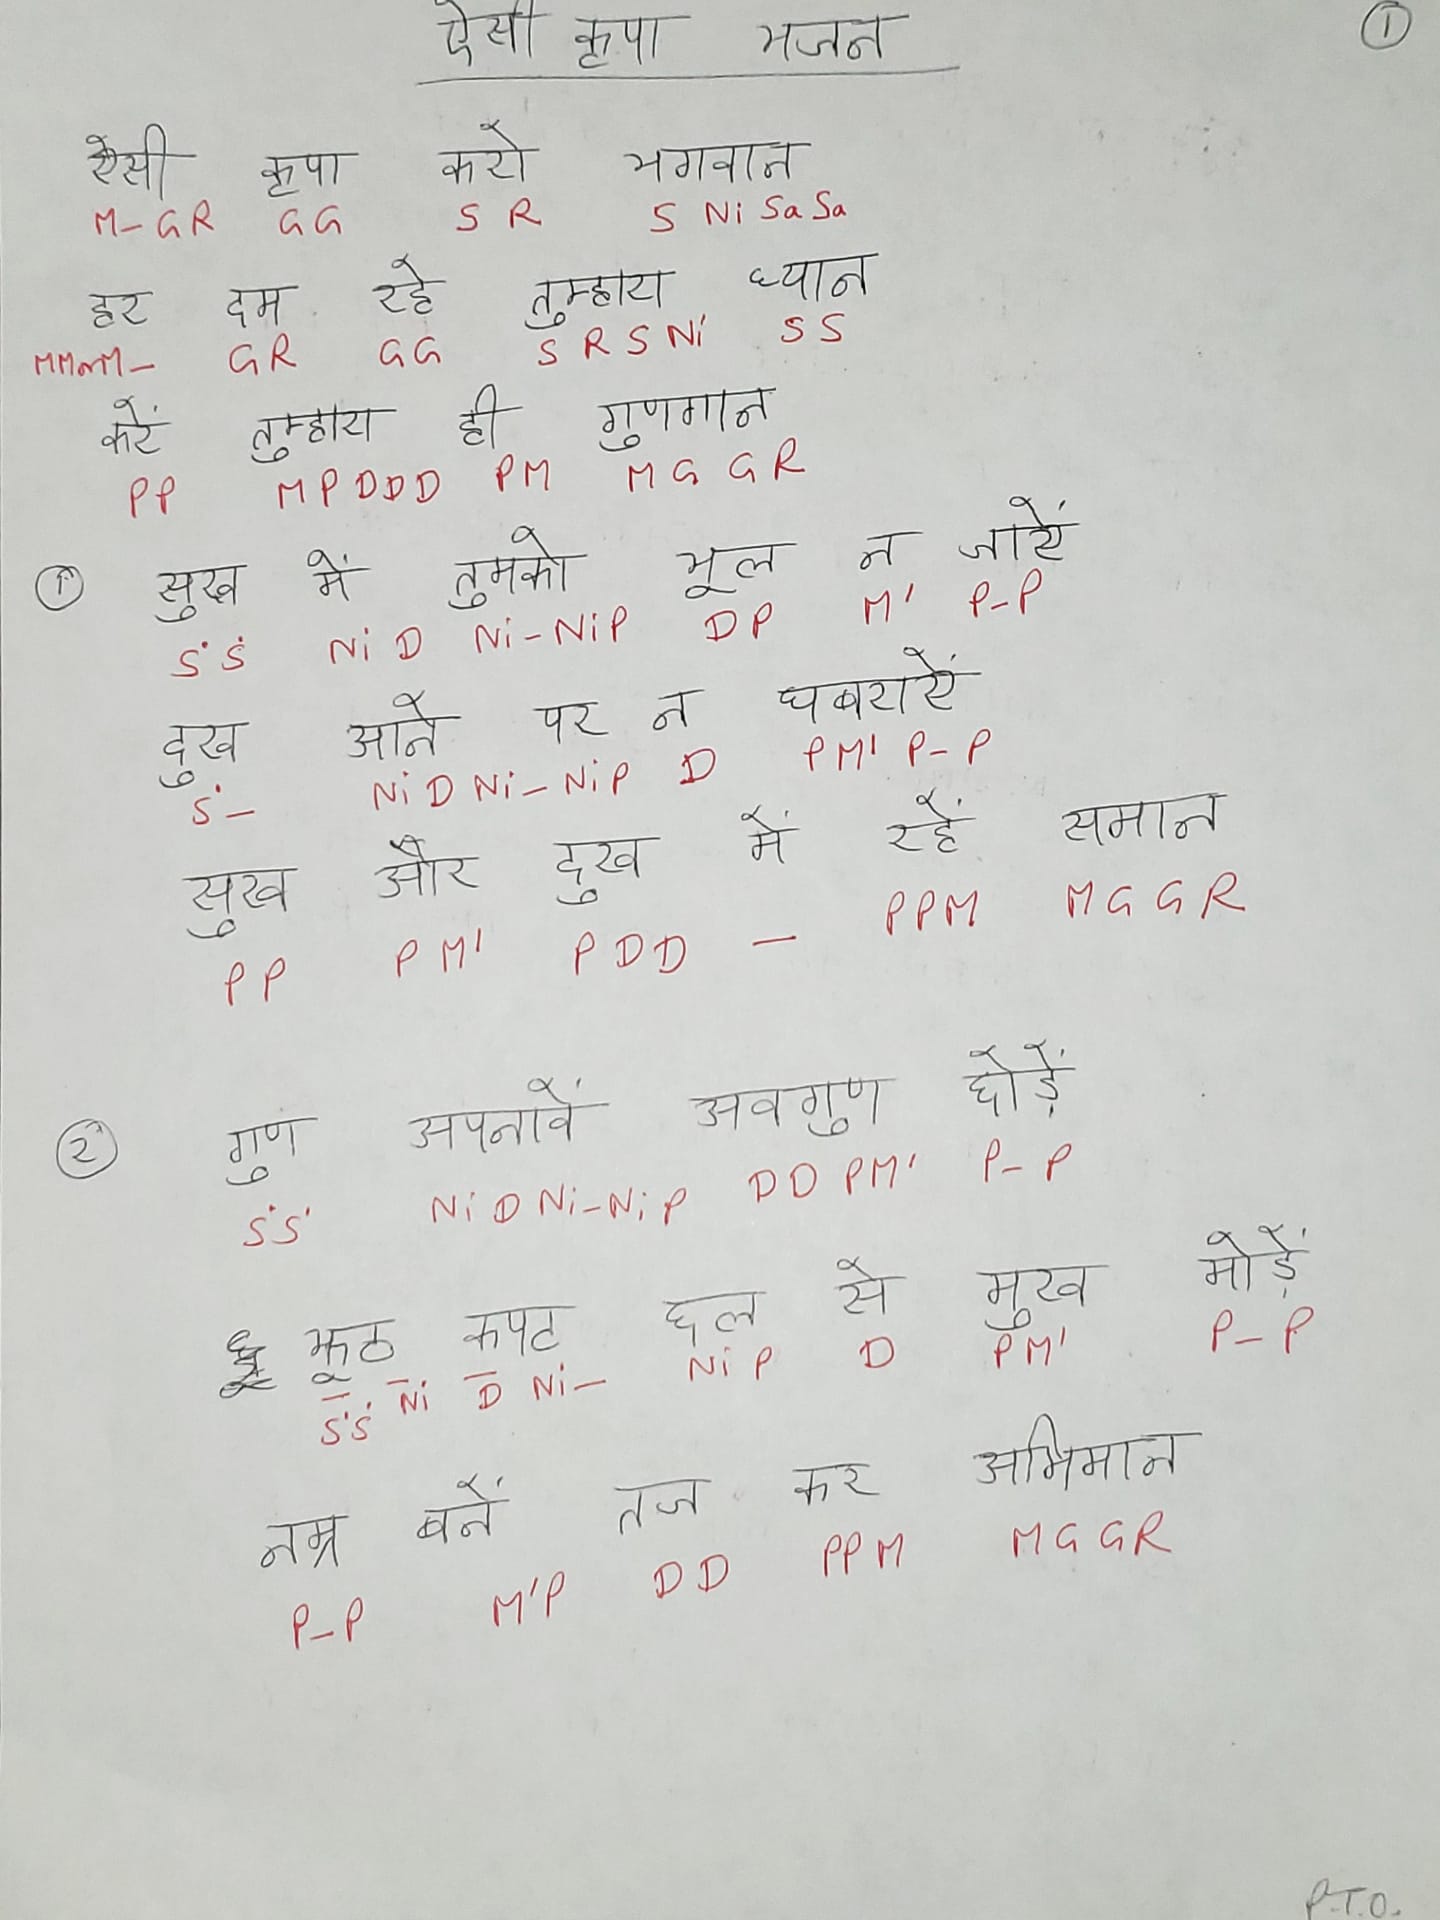 ऐसी कृपा भजन
①
ऐसी कृपा करो भगवान
M-GR GG S R S Ni Sa Sa
हर दम रहे तुम्हारा ध्यान
MMmM- GR GG S R S Ni S S
करें तुम्हारा ही गुणगान
PP MPDDD PM MG GR
① सुख में तुमको भूल न जायें
Ṡ Ṡ Ni D Ni-NiP DP M' P-P
दुख आने पर न घबराऐं
Ṡ- Ni D Ni-NiP D PM' P-P
सुख और दुख में रहें समान
PP PM' PDD - PPM MGGR
② गुण अपनावें अवगुण छोड़ें
ṠṠ Ni D Ni-NiP DD PM' P-P
झूठ कपट छल से मुख मोड़ें
ṠṠ Ni D Ni- NiP D PM' P-P
नम्र बनें तज कर अभिमान
P-P M'P DD PPM MGGR
P.T.O.